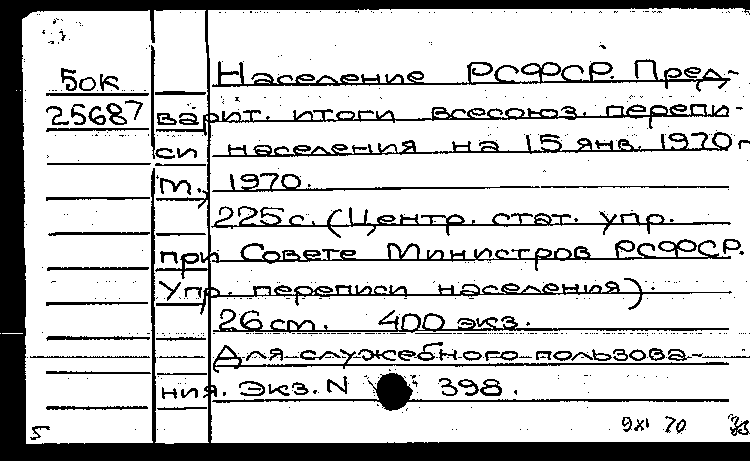 5ок Население РСФСР. Пред-
25687 варит. итоги всесоюз. перепи-
си населения на 15 янв. 1970 г
М., 1970.
225 с. (Центр. стат. упр.
при Совете Министров РСФСР.
Упр. переписи населения).
26 ст. 400 экз.
Для служебного пользова-
ния. Экз. N 398.
9 XI 70